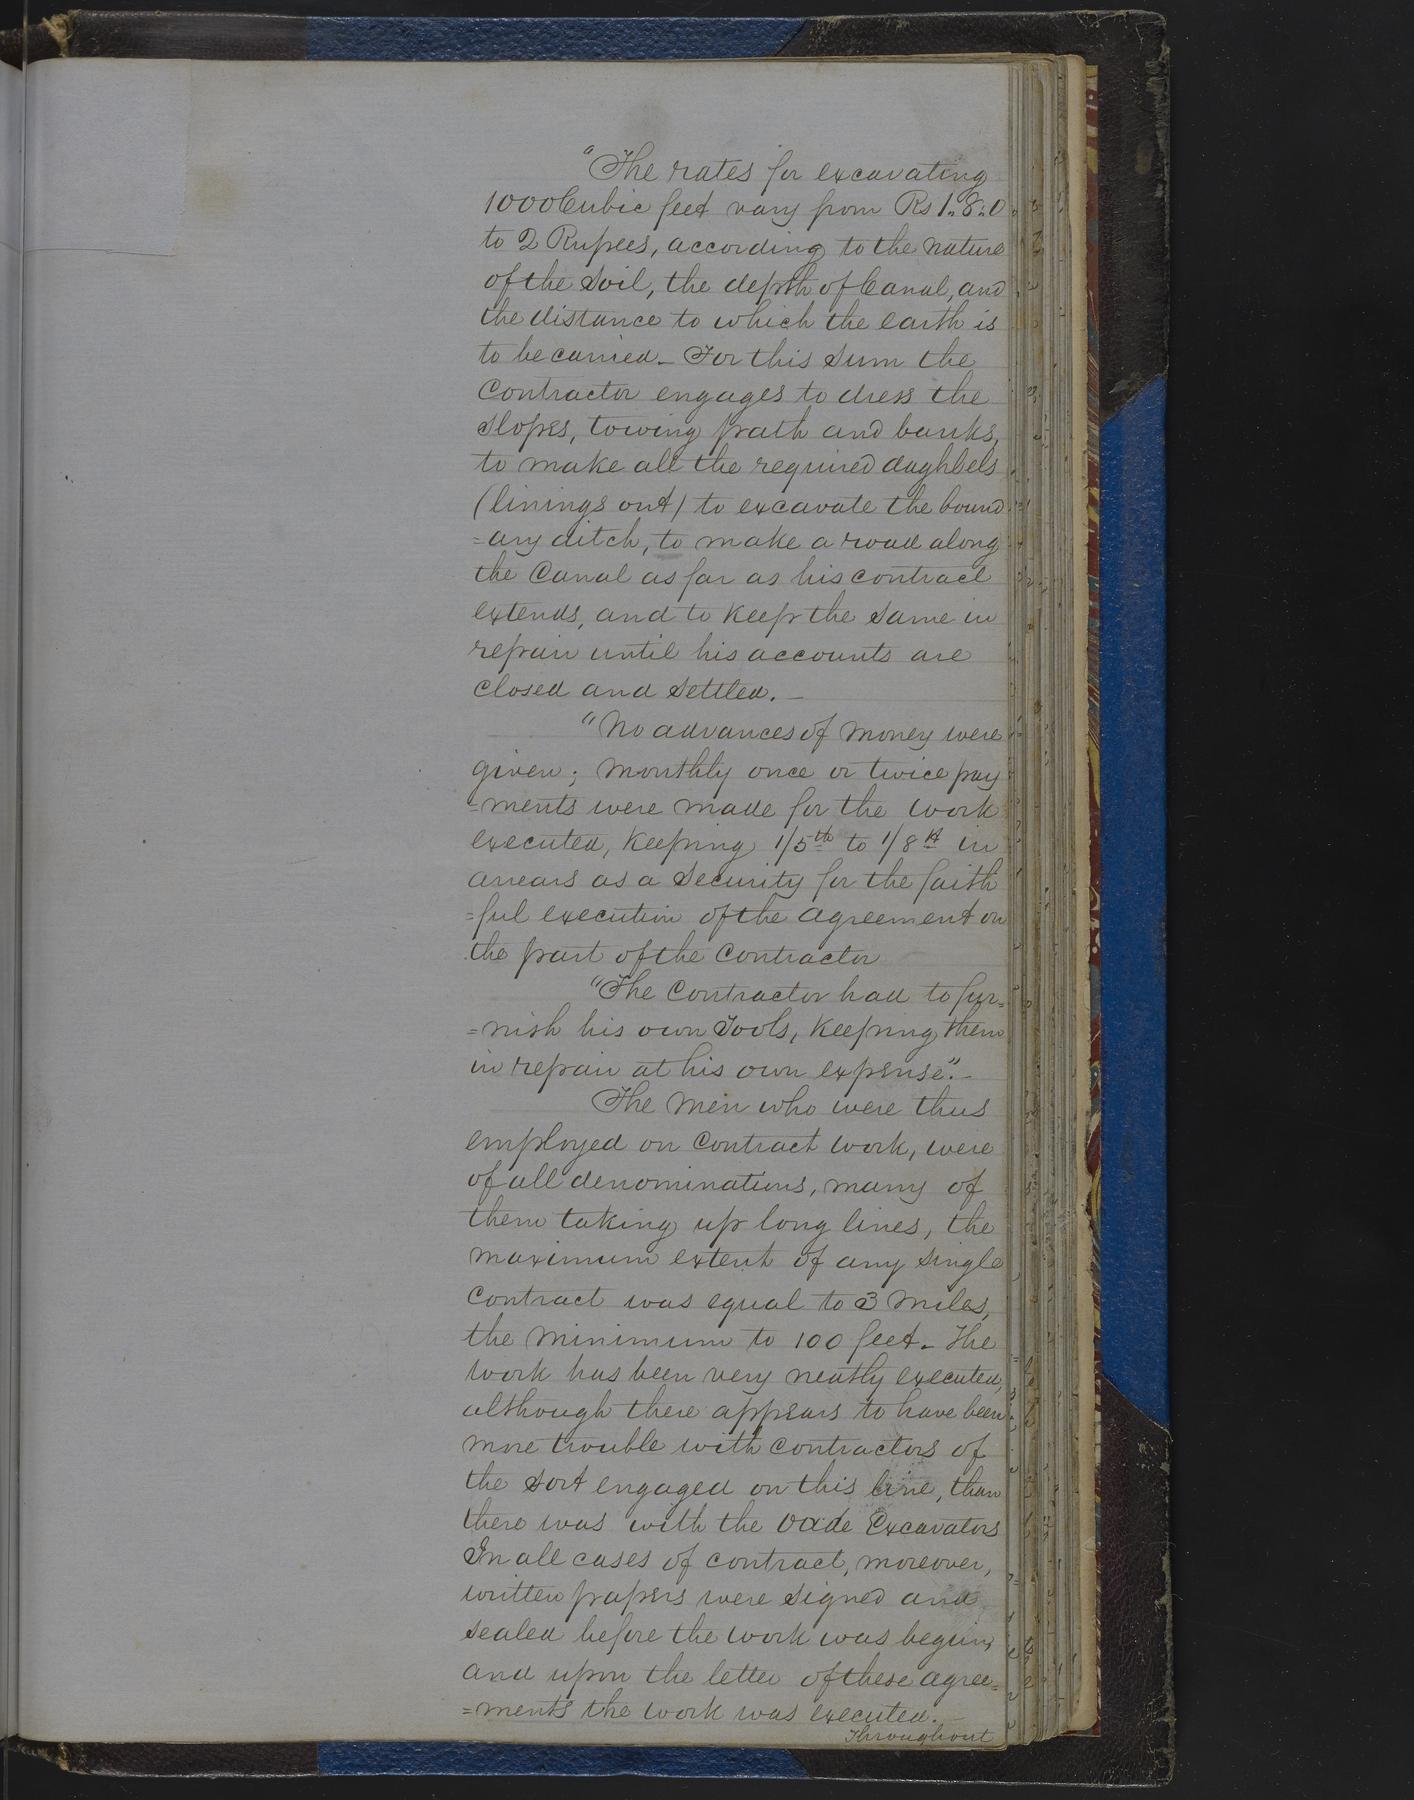 "The rates for excavating
1000 Cubic feet vary from Rs 1.,8.,0
to 2 Rupees, according to the nature
of the soil, the depth of Canal, and
the distance to which the earth is
to be carried_ For this sum the
Contractor engages to dress the
slopes, towing path and banks,
to make all the required daghbels
(linings out) to excavate the bound
=ary ditch, to make a road along
the Canal as far as his contract
extends, and to keep the same in
repair until his accounts are
closed and settled. _
"No advances of money were
given; monthly once or twice pay
=ments were made for the work
executed, keeping 1/5th to 1/8th in
arrears as a security for the faith
=ful execution of the agreement on
the part of the Contractor
"The Contractor had to fur=
=nish his own Tools, keeping them
in repair at his own expense"._
The men who were thus
employed on Contract work, were
of all denominations, many of
them taking up long lines, the
maximum extent of any single
contract was equal to 3 miles,
the minimum to 100 feet_ The
work has been very neatly executed,
although there appears to have been
more trouble with contractors of
the sort engaged on this line, than
there was with the Oade Excavators
In all cases of contract, moreover,
written papers were signed and
sealed before the work was begun,
and upon the letter of these agree=
=ments the work was executed._
Throughout